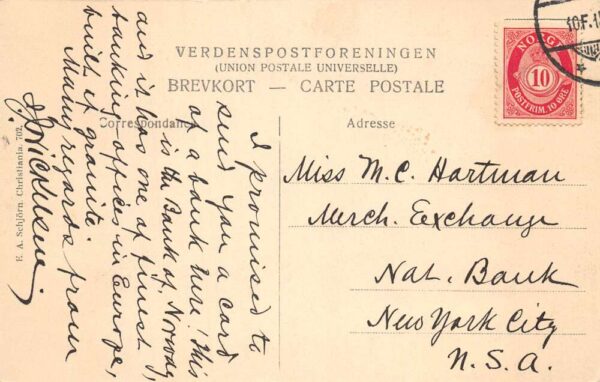 VERDENSPOSTFORENINGEN
(UNION POSTALE UNIVERSELLE)
BREVKORT — CARTE POSTALE
Correspondance
Adresse
NORGE
10
POSTFRIM. 10 ØRE
I promised to
send you a card
of a bank here! This
is the Bank of Norway,
and it was one of finest
banking offices in Europe,
built of granite.
Many regards from
Miss M. C. Hartman
Merch. Exchange
Nat. Bank
New York City
N. S. A.
E. A. Schjörn, Christiania. 702.